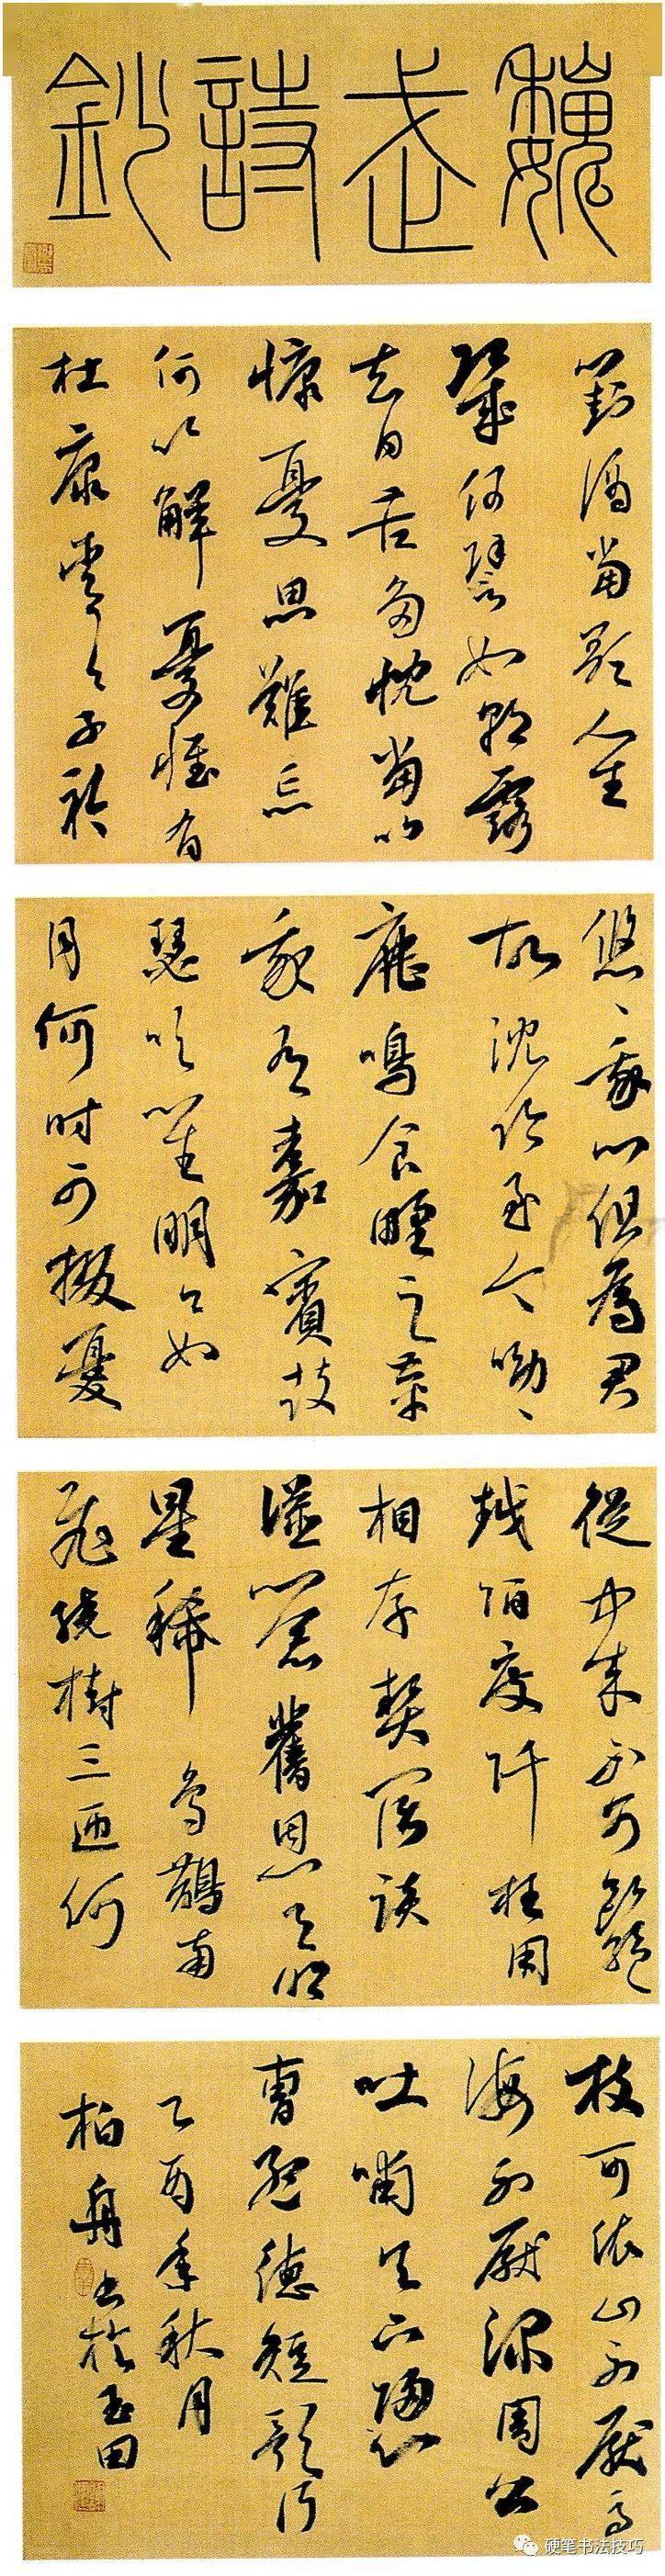 魏武詩鈔
對酒當歌人生
幾何譬如朝露
去日苦多慨當以
慷憂思難忘
何以解憂惟有
杜康青々子衿
悠々我心但為君
故沈吟至今呦々
鹿鳴食野之苹
我有嘉賓鼓
瑟吹笙明々如
月何時可掇憂
從中來不可斷絕
越陌度阡枉用
相存契闊談
讌心念舊恩月明
星稀烏鵲南
飛繞樹三匝何
枝可依山不厭高
海不厭深周公
吐哺天下歸心
曹孟德短歌行
乙酉年秋月
柏舟書於玉田
硬笔书法技巧